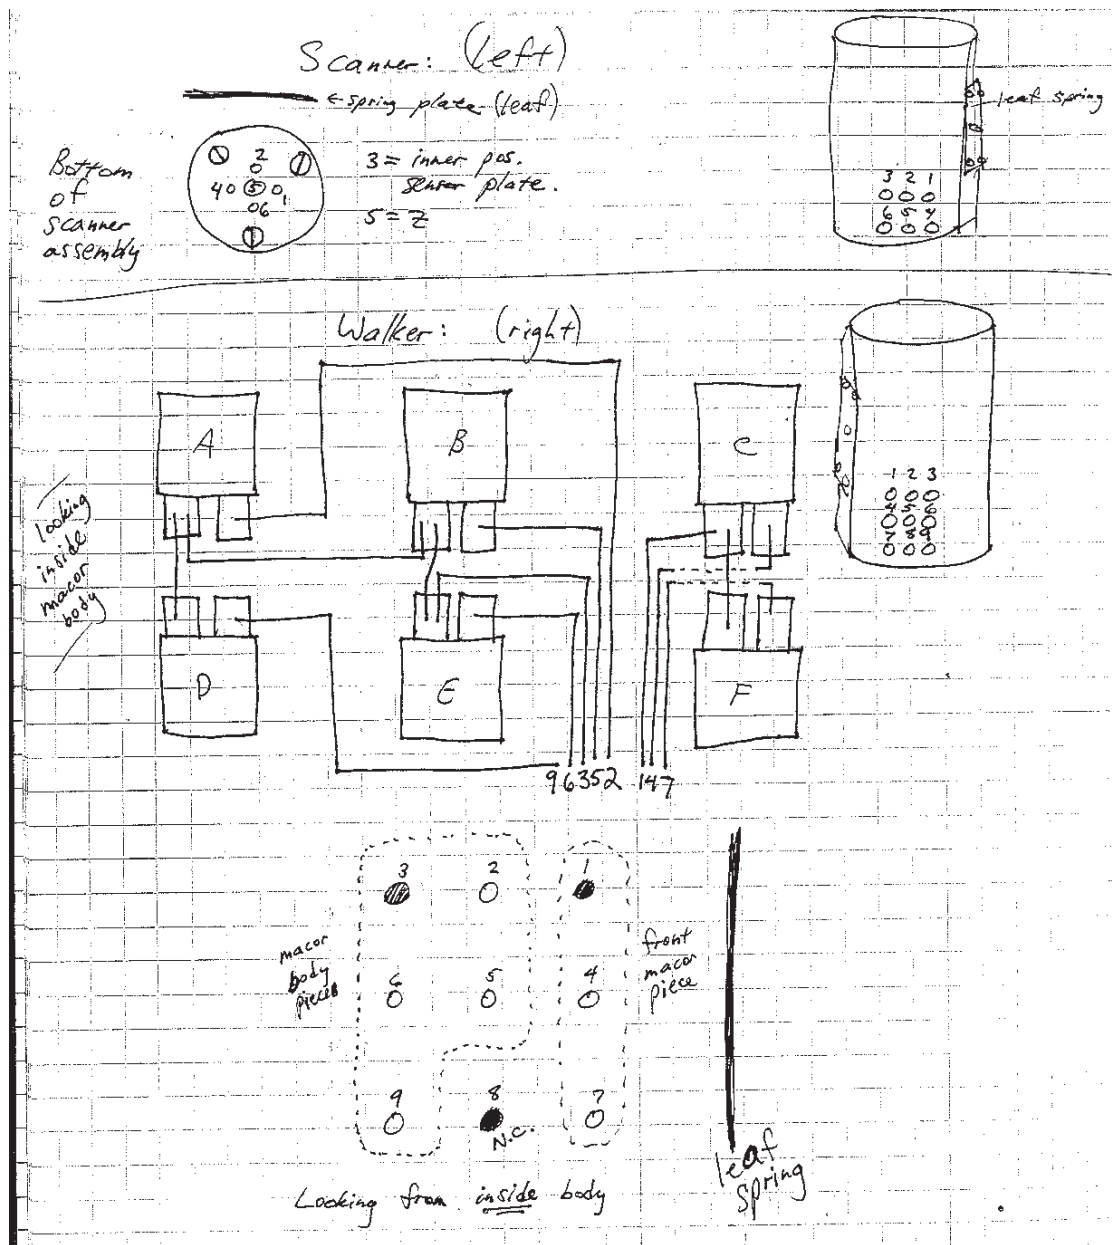 Scanner: (left)
← spring plate (leaf)
Bottom
of
scanner
assembly
2
4 5 1
6
3 = inner pos.
sensor plate.
5 = Z
leaf spring
3 2 1
6 5 4
Walker: (right)
A
B
C
looking
inside
macor
body
1 2 3
D
E
F
96352
147
3
2
1
macor
body
pieces
6
5
4
front
macor
piece
9
8
7
N.C.
leaf
spring
Looking from inside body